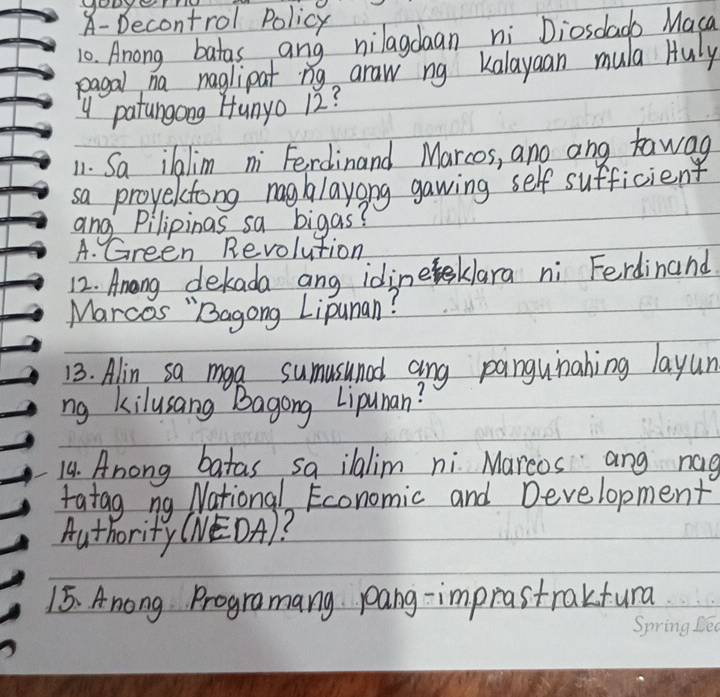 A-Decontrol Policy
10. Anong batas ang nilagdaan ni Diosdado Maca
pagal na naglipat ng araw ng kalayaan mula Huly
4 patungong Hunyo 12?
11. Sa ilalim ni Ferdinand Marcos, ano ang tawag
sa proyektong naglalayong gawing self sufficient
ang Pilipinas sa bigas?
A. Green Revolution
12. Anong dekada ang idineklara ni Ferdinand
Marcos "Bagong Lipunan?
13. Alin sa mga sumusunod ang pangunahing layun
ng kilusang Bagong Lipunan?
14. Anong batas sa ilalim ni Marcos ang nag
tatag ng National Economic and Development
Authority (NEDA)?
15. Anong Programang pang-imprastraktura
Spring Lea